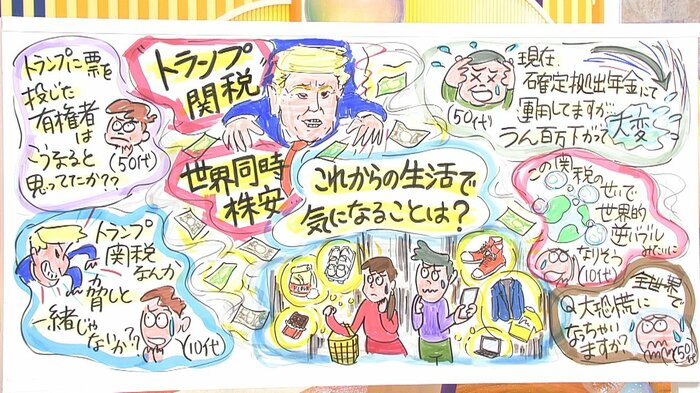 トランプに票を
投じた
有権者
は
こうなると
思ってたか??
(50代)
"トランプ
関税"
世界同時
株安
これからの生活で
気になることは?
現在、
確定拠出年金にて
運用してますが
うん百万下がって
大変
(50代)
この関税の
せいで
世界的
逆バブル
みたいに
なりそう
(10代)
トランプ
関税なんか
脅しと
一緒じゃ
ないか??
(10代)
全世界で
Q大恐慌に
なっちゃい
ますか?
(50代)